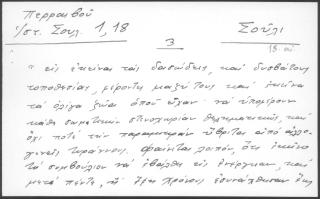 Περραιβού
Ἱστ. Σουλ. 1, 18
Σούλι
18 αἰ
3
"εἰς ἐκείνας τὰς δασώδεις, καὶ δυσβάτους
τοποθεσίας, φέροντες μαζύ τους καὶ ἐκεῖνα
τὰ ὀλίγα ζῶα ὁποῦ εἶχαν· νὰ ὑπομένουν
κάθε σωματικὴν στενοχωρίαν θεληματικῶς, καὶ
ὄχι ποτὲ τὴν παραμικρὰν ὕβριν ἀπὸ ἀλλο-
γενεῖς τυράννους. φαίνεται λοιπόν, ὅτι ἐκεῖνο
τὸ συμβούλιον νὰ ἐβάλθη εἰς ἐνέργειαν, καὶ
μετὰ πέντε, ἢ ἕξι χρόνους ἐσυνάχθησαν ἕως